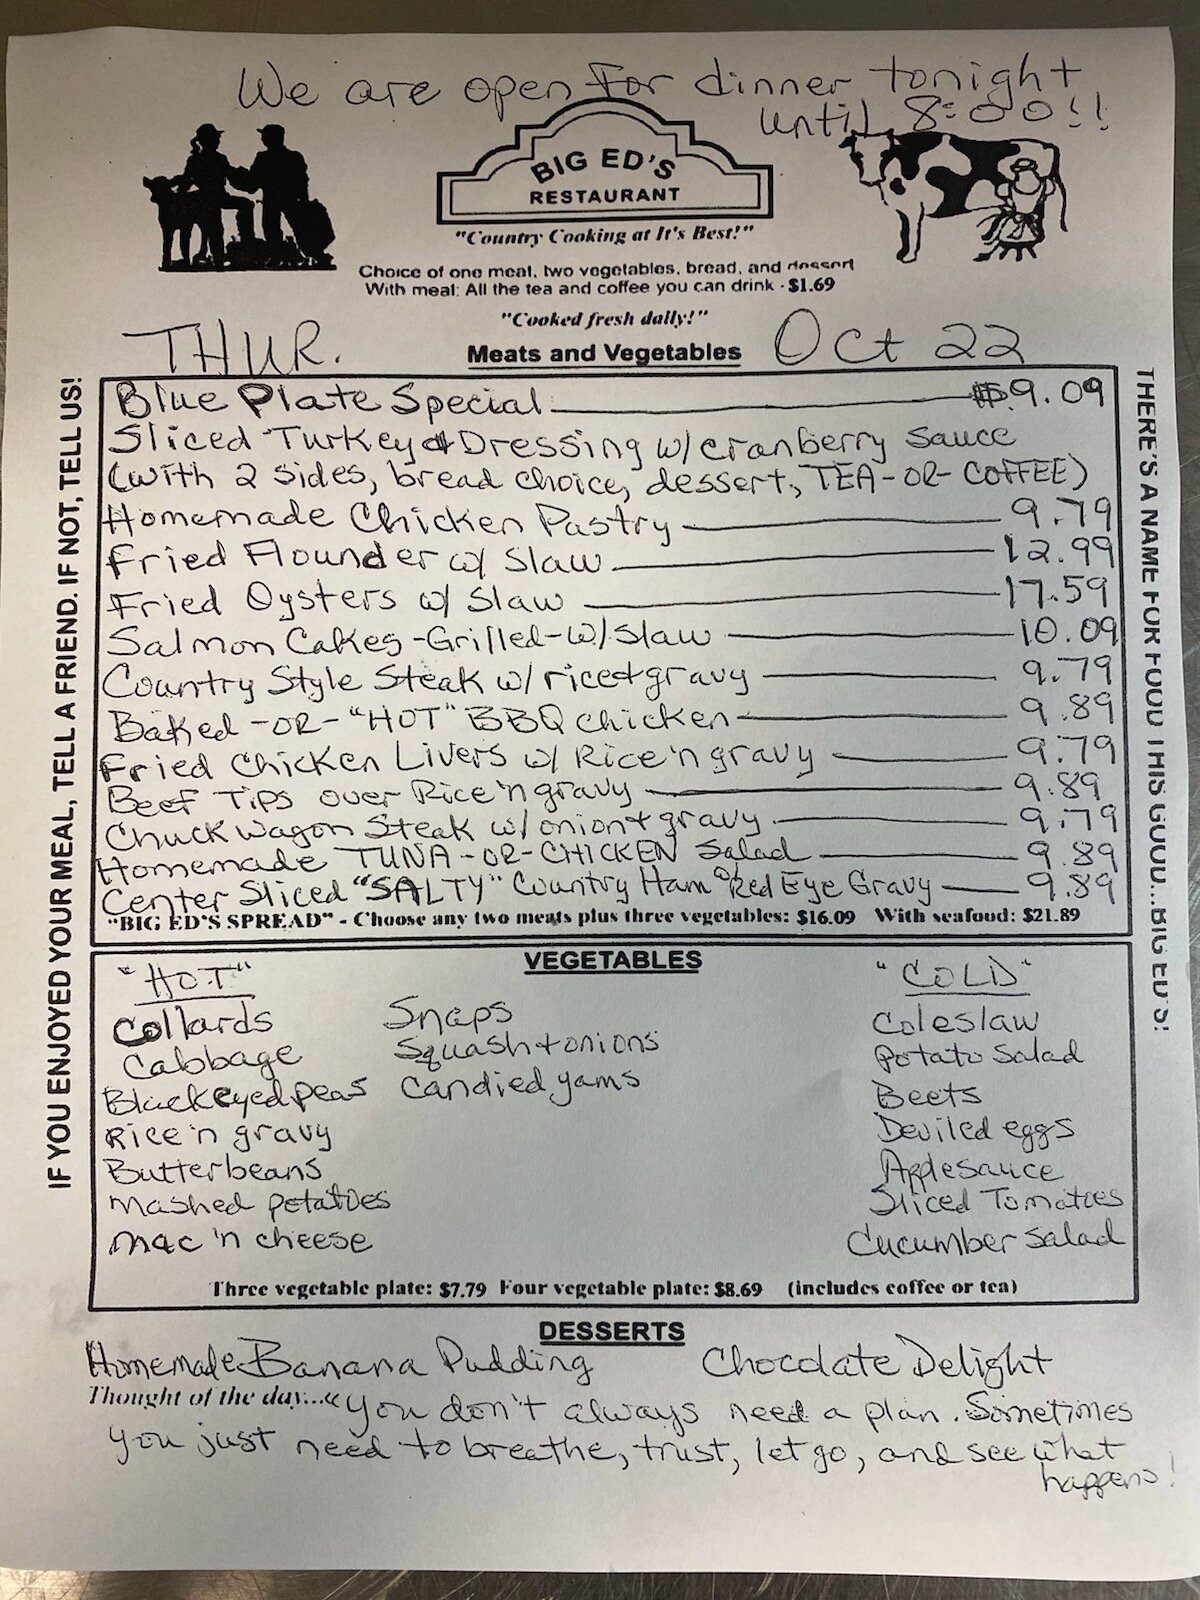 We are open For dinner tonight
until 8:00!!
BIG ED'S
RESTAURANT
"Country Cooking at It's Best!"
Choice of one meat, two vegetables, bread, and dessert
With meal: All the tea and coffee you can drink - $1.69
"Cooked fresh daily!"
THUR.
Meats and Vegetables
Oct 22
IF YOU ENJOYED YOUR MEAL, TELL A FRIEND. IF NOT, TELL US!
THERE'S A NAME FOR FOOD THIS GOOD...BIG ED'S!
Blue Plate Special $9.09
Sliced Turkey & Dressing w/ cranberry sauce
(with 2 sides, bread choice, dessert, TEA-OR-COFFEE)
Homemade Chicken Pastry 9.79
Fried Flounder w/ Slaw 12.99
Fried Oysters w/ Slaw 17.59
Salmon Cakes -Grilled- w/ Slaw 10.09
Country Style Steak w/ rice + gravy 9.79
Baked -OR- "HOT" BBQ chicken 9.89
Fried Chicken Livers w/ Rice 'n gravy 9.79
Beef Tips over Rice 'n gravy 9.89
Chuck wagon Steak w/ onion + gravy 9.79
Homemade TUNA -OR- CHICKEN Salad 9.89
Center Sliced "SALTY" Country Ham w/ Red Eye Gravy 9.89
"BIG ED'S SPREAD" - Choose any two meats plus three vegetables: $16.09 With seafood: $21.89
VEGETABLES
"HOT"
Collards
Cabbage
Blackeyed peas
Rice 'n gravy
Butterbeans
Mashed potatoes
Mac 'n cheese
Snaps
Squash + onions
Candied yams
"COLD"
Coleslaw
Potato Salad
Beets
Deviled eggs
Applesauce
Sliced Tomatoes
Cucumber Salad
Three vegetable plate: $7.79 Four vegetable plate: $8.69 (includes coffee or tea)
DESSERTS
Homemade Banana Pudding Chocolate Delight
Thought of the day..." You don't always need a plan. Sometimes
you just need to breathe, trust, let go, and see what
happens!